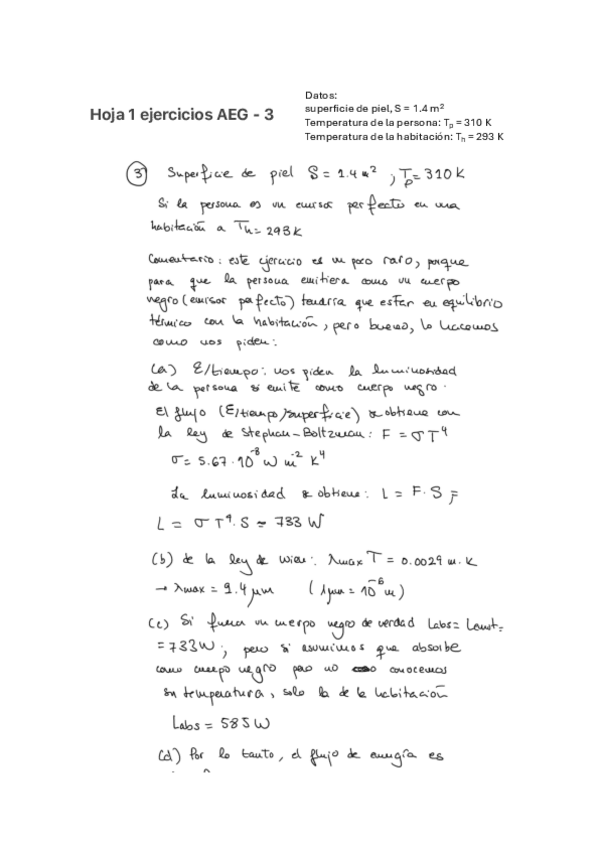 Hoja 1 ejercicios AEG - 3
Datos:
superficie de piel, S = 1.4 m²
Temperatura de la persona: Tₚ = 310 K
Temperatura de la habitación: Tₕ = 293 K
③ Superficie de piel S = 1.4 m² , Tp = 310 K
Si la persona es un emisor perfecto en una
habitación a Th = 293 K
Comentario: este ejercicio es un poco raro, porque
para que la persona emitiera como un cuerpo
negro (emisor perfecto) tendría que estar en equilibrio
térmico con la habitación, pero bueno, lo hacemos
como nos piden:
(a) E/tiempo: nos piden la luminosidad
de la persona si emite como cuerpo negro.
El flujo (E/tiempo/superficie) se obtiene con
la ley de Stephan-Boltzman: F = σT⁴
σ = 5.67·10⁻⁸ W m⁻² K⁴
La luminosidad se obtiene: L = F·S
L = σT⁴·S ≃ 733 W
(b) de la ley de Wien: λmax T = 0.0029 m·K
→ λmax = 9.4 μm (1μm = 10⁻⁶ m)
(c) Si fuera un cuerpo negro de verdad Labs =
= 733 W ; pero si asumimos que absorbe
como cuerpo negro pero no conocemos
su temperatura, solo la de la habitación
Labs = 585 W
(d) Por lo tanto, el flujo de energía es